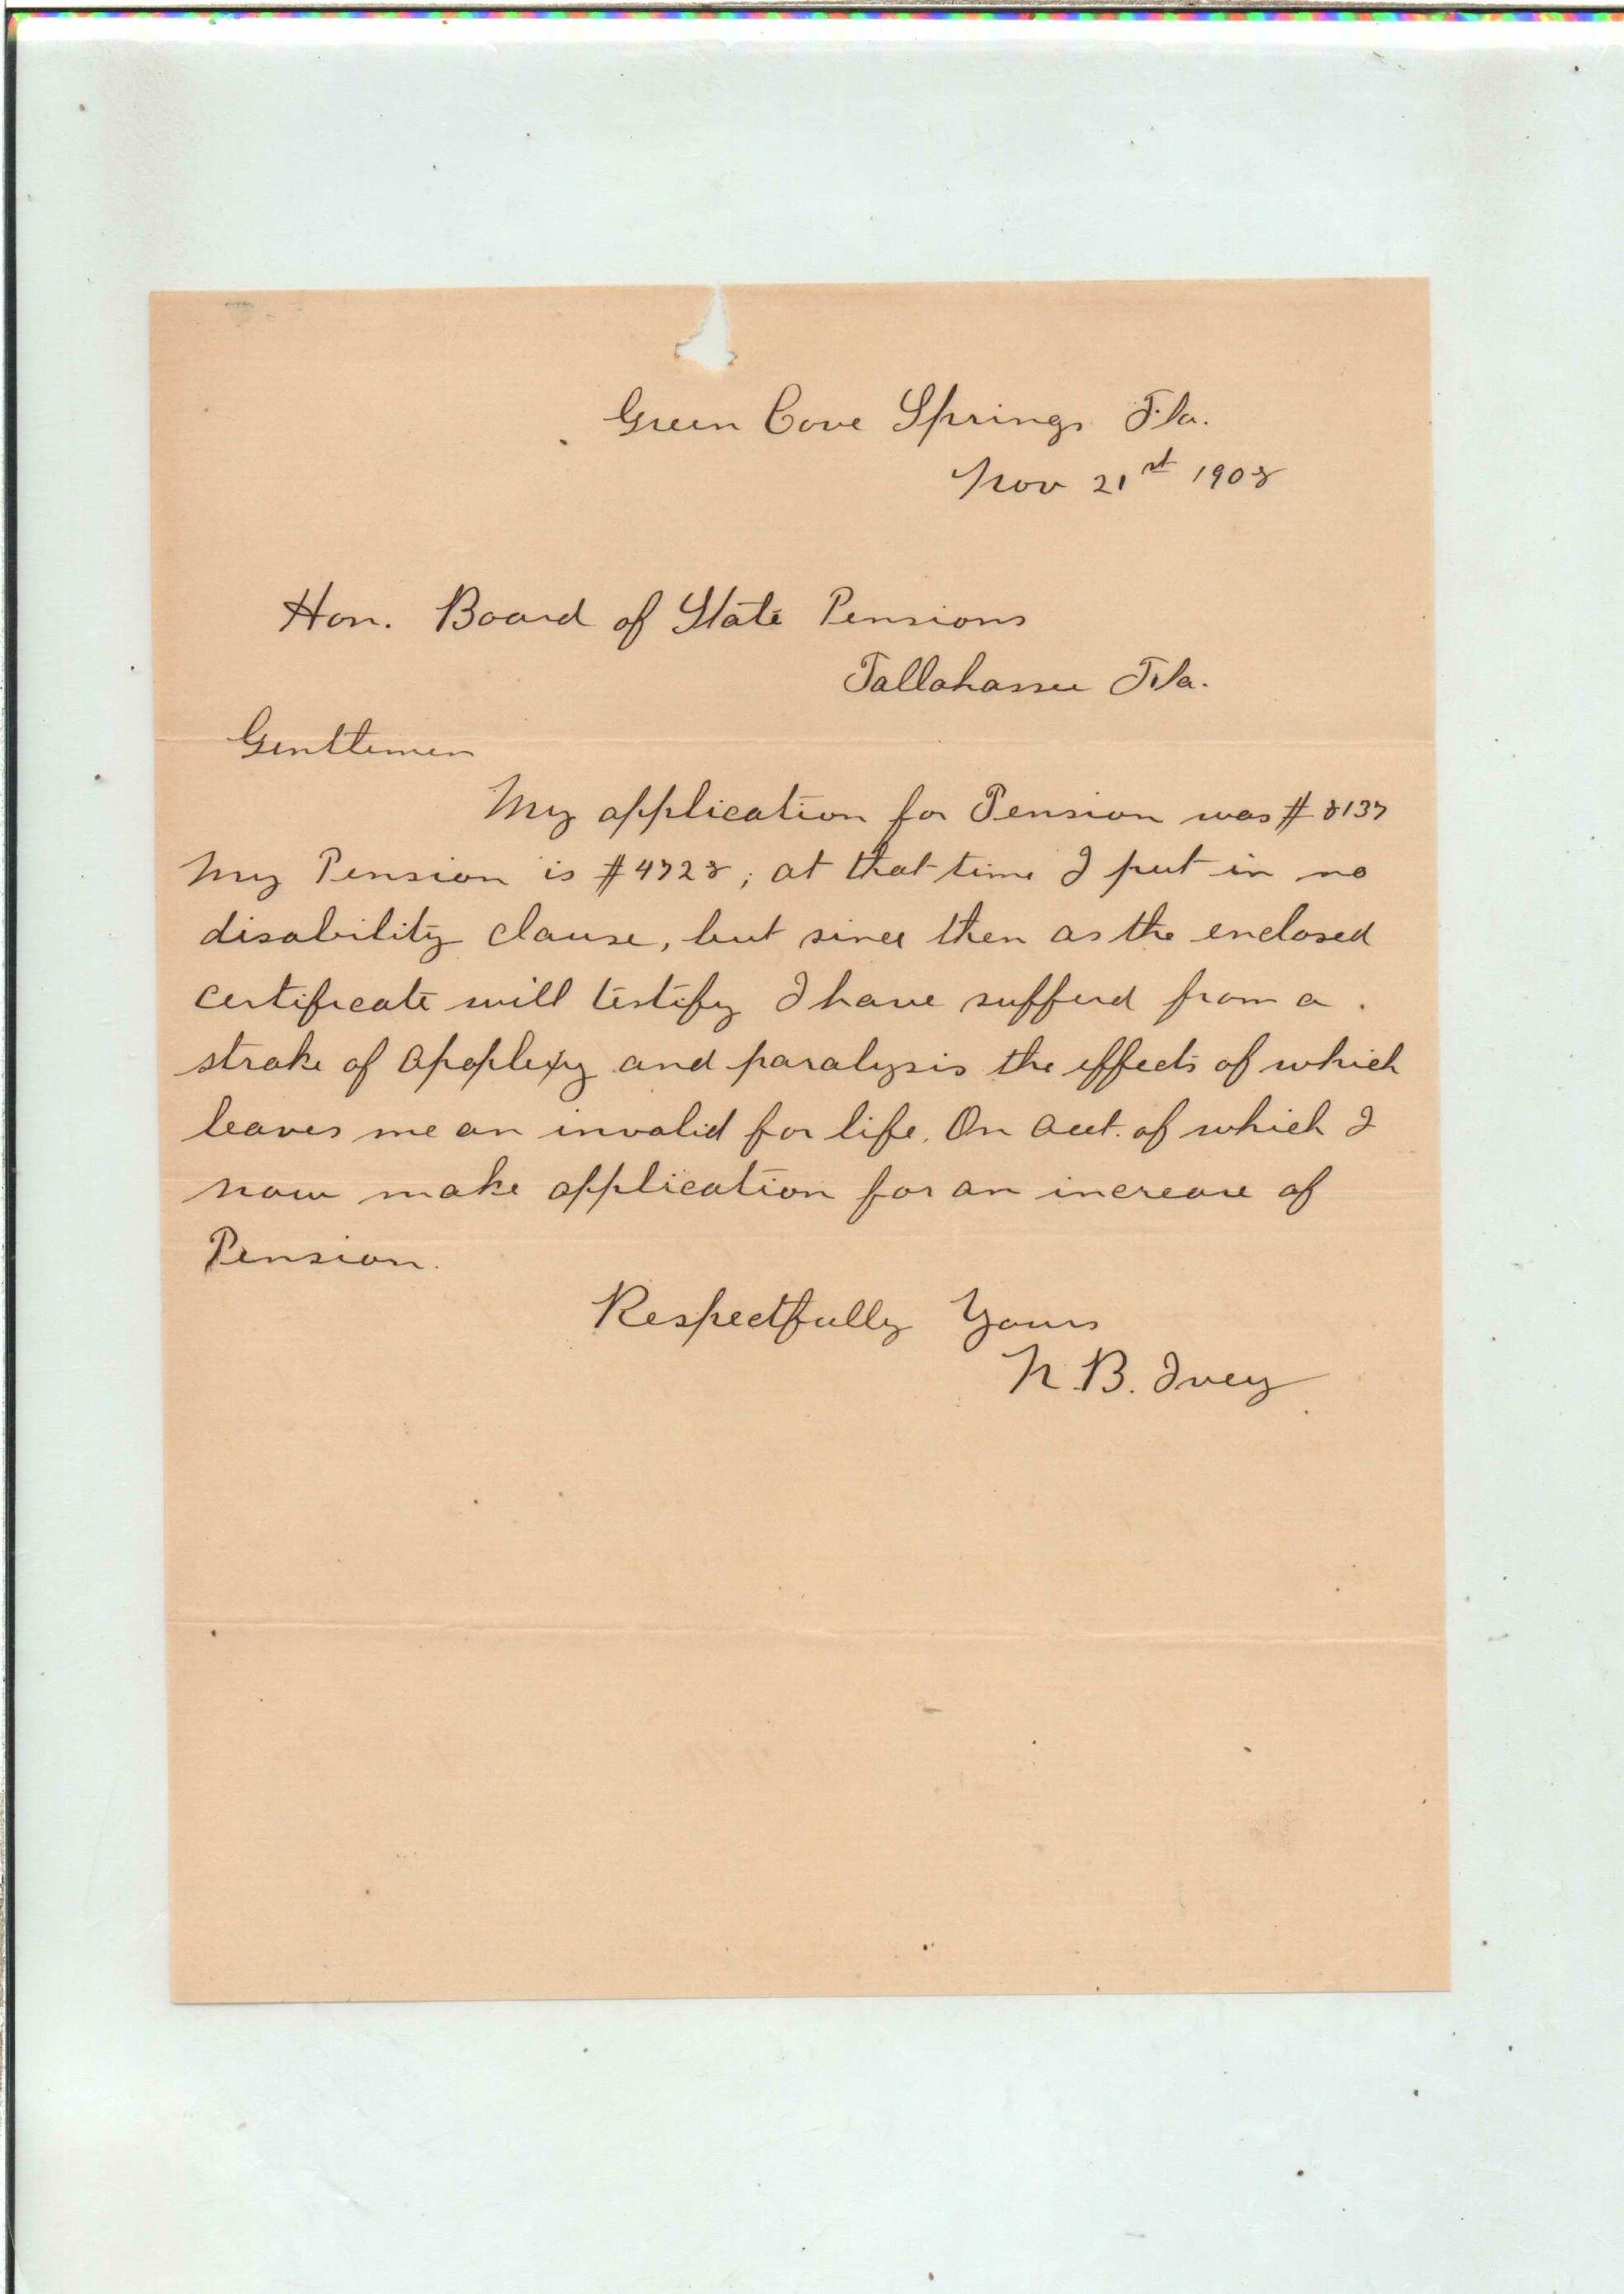 Green Cove Springs Fla.
Nov 21st 1908
Hon. Board of State Pensions
Tallahassee Fla.
Gentlemen
My application for Pension was # 8137
My Pension is #4728; at that time I put in no
disability clause, but since then as the enclosed
certificate will testify I have sufferd from a
stroke of apoplexy and paralysis the effects of which
leaves me an invalid for life. On acct. of which I
now make application for an increase of
Pension.
Respectfully Yours
N. B. Ivey